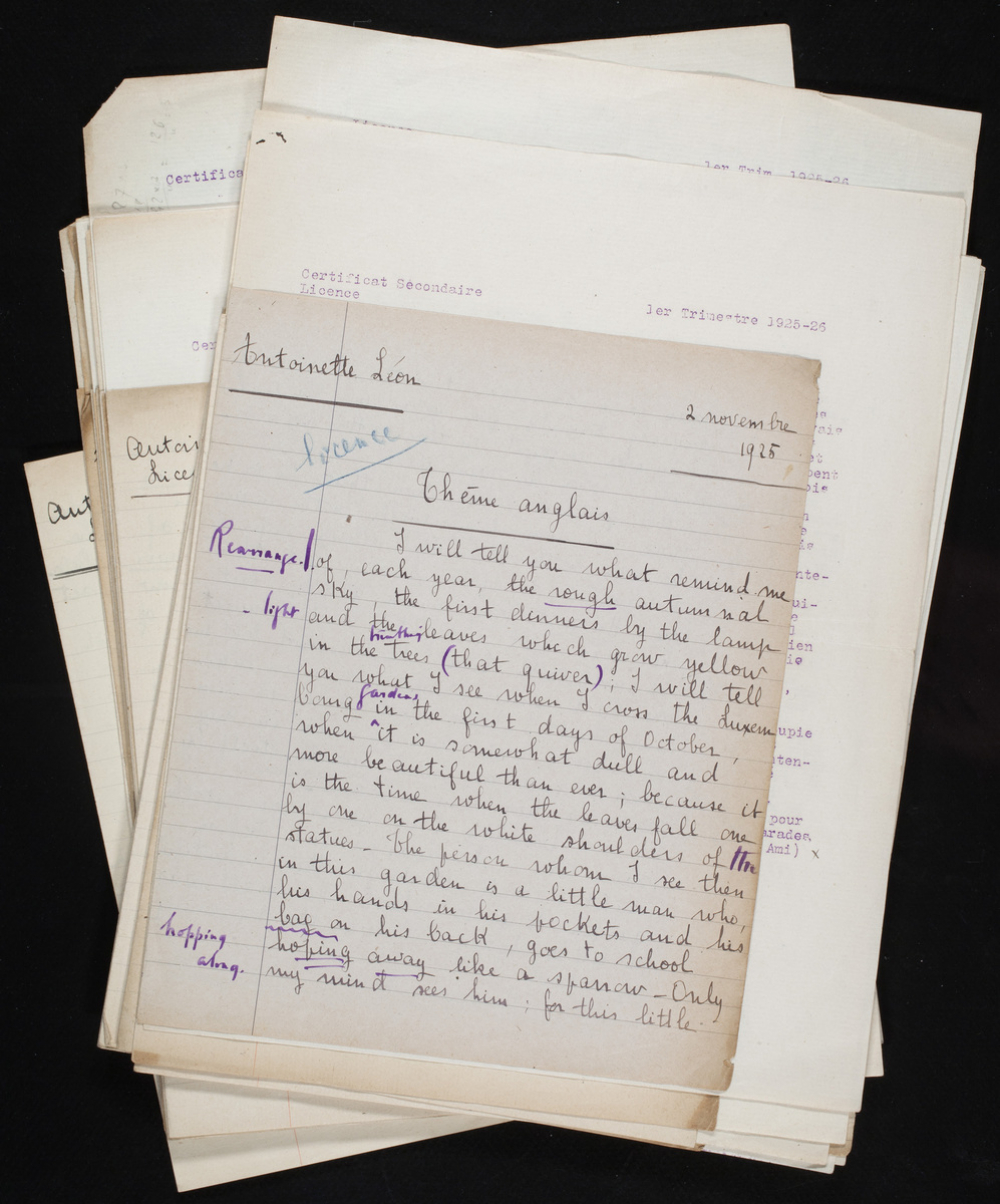 Licence
1er Trim. 1925-26
Certifica
Certificat Sécondaire
Licence
1er Trimestre 1925-26
Cer
Antoinette Léon
2 novembre
1925
Licence
Thème anglais
Rearrange.
I will tell you what remind me
of, each year, the rough autumnal
sky, the first dinners by the lamp
- light
and the leaves which grow yellow
in the trees (that quiver); I will tell
you what I see when I cross the Luxem
gardens
bourg in the first days of October,
when it is somewhat dull and
more beautiful than ever; because it
is the time when the leaves fall one
by one on the white shoulders of the
statues_ The person whom I see then
in this garden is a little man who,
his hands in his pockets and his
bag on his back, goes to school
hopping
along.
hoping away like a sparrow_Only
my mind sees him; for this little
Antoi
Lice
Ant
nte-
ui-
ien
upie
ten-
pour
arades
Ami) x